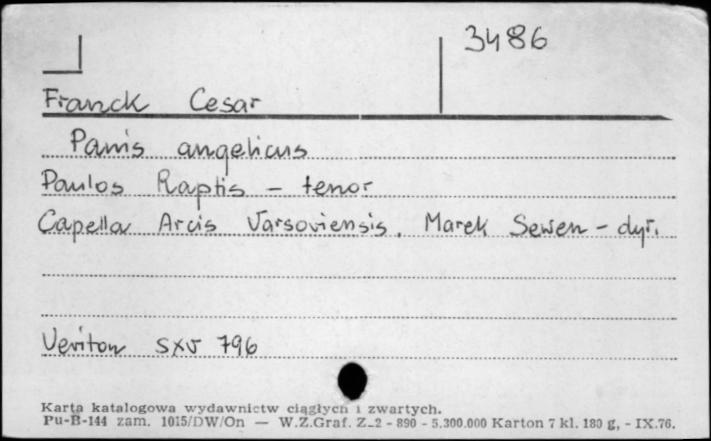 3486
Franck Cesar
Panis angelicus
Paulos Raptis - tenor
Capella Arcis Varsoviensis. Marek Sewen - dyr.
Veriton sxv 796
Karta katalogowa wydawnictw ciągłych i zwartych.
Pu-B-144 zam. 1015/DW/On — W.Z.Graf. Z-2 - 890 - 5.300.000 Karton 7 kl. 180 g, - IX.76.